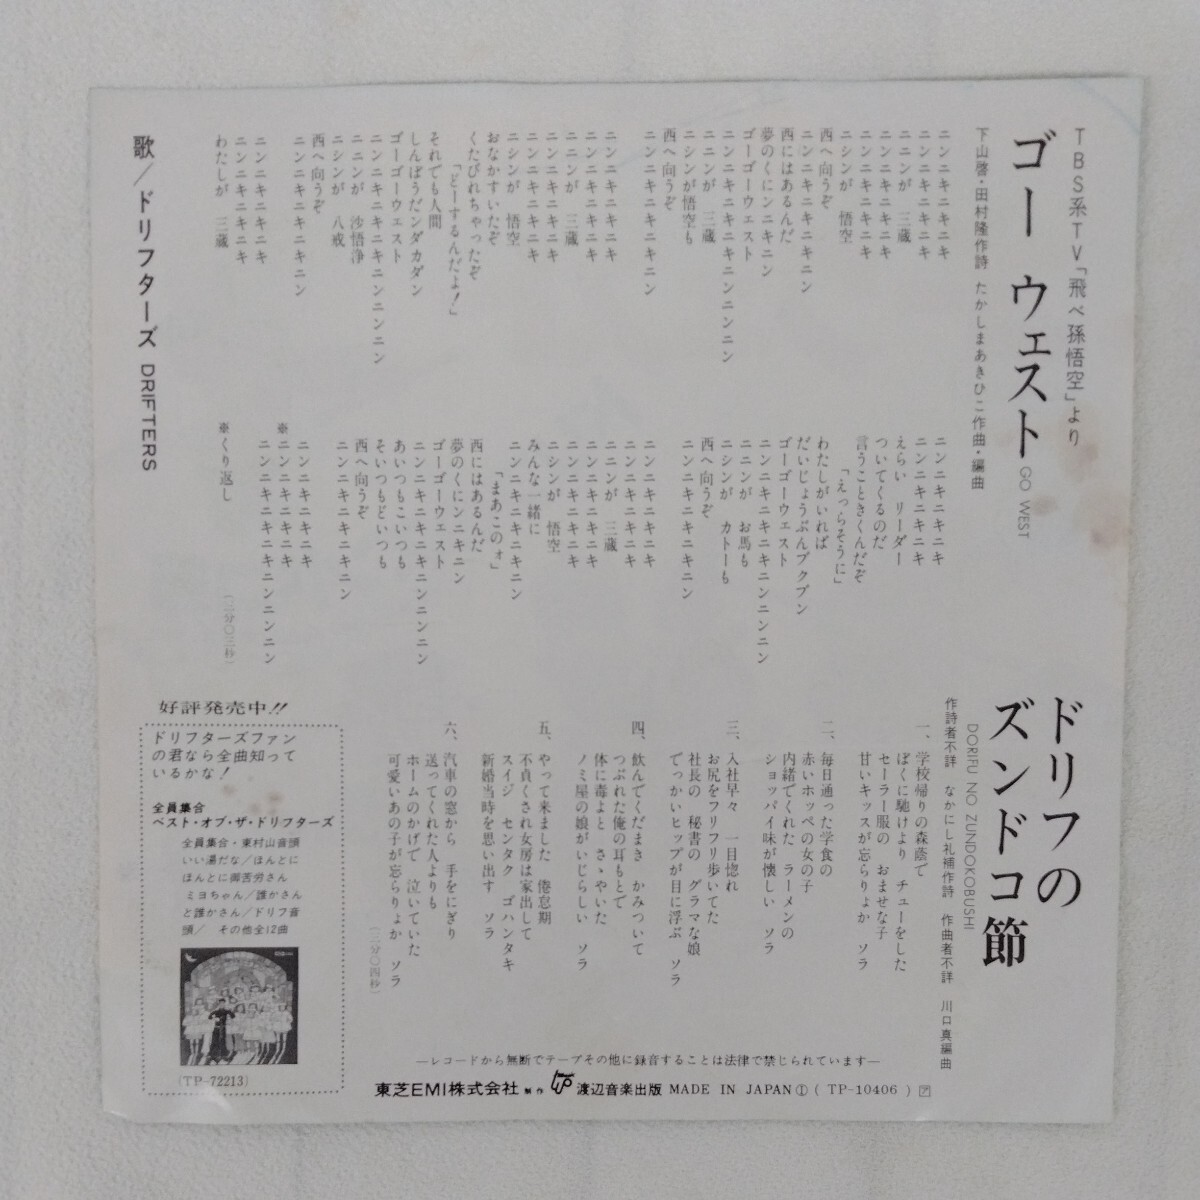 TBS系TV「飛べ孫悟空」より
ゴー ウェスト
GO WEST
下山啓・田村隆作詩 たかしまあきひこ作曲・編曲
ニンニキニキニキ
ニンニキニキニキ
ニニンが 三蔵
ニンニキニキニキ
ニンニキニキニキ
ニシンが 悟空
西へ向うぞ
ニンニキニキニキニン
西にはあるんだ
夢のくにンニキニン
ゴーゴーウェスト
ニンニキニキニキニンニンニン
ニニンが 三蔵
ニシンが悟空も
西へ向うぞ
ニンニキニキニキニン
ニンニキニキニキ
ニンニキニキニキ
ニニンが 三蔵
ニンニキニキニキ
ニンニキニキニキ
ニシンが 悟空
おなかすいたぞ
くたびれちゃったぞ
「どーするんだよ!」
それでも人間
しんぼうだンダカダン
ゴーゴーウェスト
ニンニキニキニキニンニンニン
ニニンが 沙悟浄
ニシンが 八戒
西へ向うぞ
ニンニキニキニキニン
ニンニキニキニキ
ニンニキニキニキ
わたしが 三蔵
ニンニキニキニキ
ニンニキニキニキ
えらい リーダー
ついてくるのだ
言うこときくんだぞ
「えっらそうに」
わたしがいれば
だいじょうぶんブクブン
ゴーゴーウェスト
ニンニキニキニキニンニンニン
ニニンが お馬も
ニシンが カトーも
西へ向うぞ
ニンニキニキニキニン
ニンニキニキニキ
ニンニキニキニキ
ニニンが 三蔵
ニンニキニキニキ
ニンニキニキニキ
ニシンが 悟空
みんな一緒に
ニンニキニキニキニン
「まあこのォ」
西にはあるんだ
夢のくにンニキニン
ゴーゴーウェスト
ニンニキニキニキニンニンニン
あいつもこいつも
そいつもどいつも
西へ向うぞ
ニンニキニキニキニン
ニンニキニキニキ
※ニンニキニキニキ
ニンニキニキニキニンニンニン
※くり返し
(三分〇三秒)
歌/ドリフターズ DRIFTERS
ドリフの
ズンドコ節
DORIFU NO ZUNDOKOBUSHI
作詩者不詳 なかにし礼補作詩 作曲者不詳 川口真編曲
一、学校帰りの森蔭で
ぼくに馳けより チューをした
セーラー服の おませな子
甘いキッスが忘らりょか ソラ
二、毎日通った学食の
赤いホッペの女の子
内緒でくれた ラーメンの
ショッパイ味が懐しい ソラ
三、入社早々 一目惚れ
お尻をフリフリ歩いてた
社長の 秘書の グラマな娘
でっかいヒップが目に浮ぶ ソラ
四、飲んでくだまき かみついて
つぶれた俺の耳もとで
体に毒よと さゝやいた
ノミ屋の娘がいじらしい ソラ
五、やって来ました 倦怠期
不貞くされ女房は家出して
スイジ センタク ゴハンタキ
新婚当時を思い出す ソラ
六、汽車の窓から 手をにぎり
送ってくれた人よりも
ホームのかげで 泣いていた
可愛いあの子が忘らりょか ソラ
(二分〇四秒)
好評発売中!!
ドリフターズファン
の君なら全曲知って
いるかな!
全員集合
ベスト・オブ・ザ・ドリフターズ
全員集合・東村山音頭
いい湯だな/ほんとに
ほんとに御苦労さん
ミヨちゃん/誰かさん
と誰かさん/ドリフ音
頭/ その他全12曲
(TP-72213)
—レコードから無断でテープその他に録音することは法律で禁じられています—
東芝EMI株式会社 制作 渡辺音楽出版 MADE IN JAPAN ① ( TP-10406 ) ア